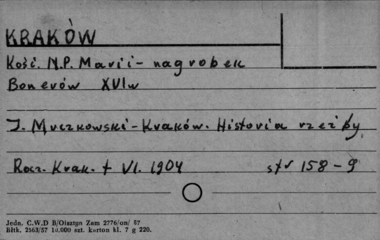 KRAKÓW
Kość. N.P. Marii - nagrobek
Bonerów XVIw
J. Muczkowski - Kraków. Historia rzeźby
Rocz. Krak. t VI. 1904 str 158-9
Jedn. C.W.D B/Olsztyn Zam 2776/on/ 57
Błtk. 2563/57 10.000 szt. karton kl. 7 g 220.